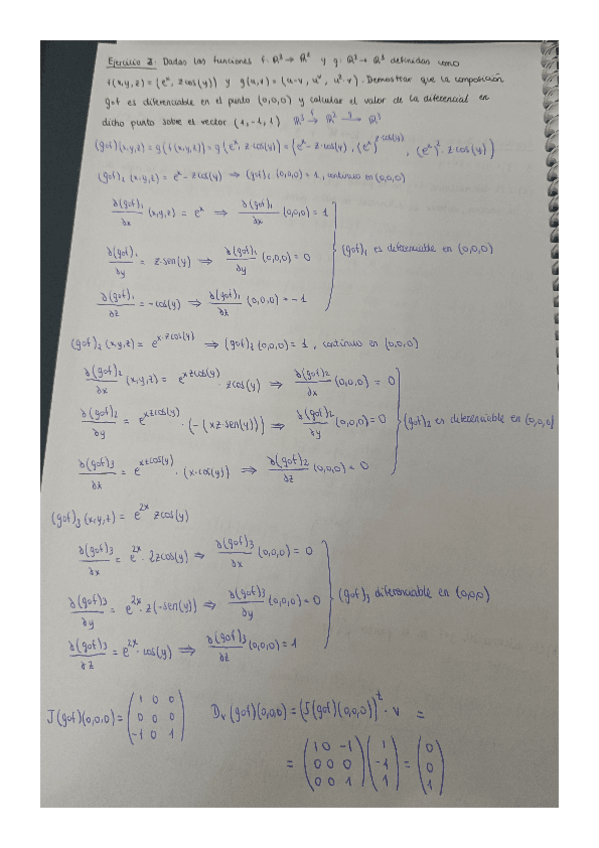 Ejercicio 2: Dadas las funciones f: ℝ³ → ℝ² y g: ℝ² → ℝ³ definidas como
f(x,y,z) = (eˣ, z cos(y)) y g(u,v) = (u-v, uᵛ, u²·v). Demostrar que la composición
gof es diferenciable en el punto (0,0,0) y calcular el valor de la diferencial en
dicho punto sobre el vector (1,-1,1) ℝ³ →f ℝ² →g ℝ³
(gof)(x,y,z) = g(f(x,y,z)) = g(eˣ, z cos(y)) = (eˣ - z·cos(y), (eˣ)^(z·cos(y)), (eˣ)²·z cos(y))
(gof)₁(x,y,z) = eˣ - z cos(y) ⇒ (gof)₁(0,0,0) = 1, continuo en (0,0,0)
∂(gof)₁/∂x (x,y,z) = eˣ ⇒ ∂(gof)₁/∂x (0,0,0) = 1
∂(gof)₁/∂y = z·sen(y) ⇒ ∂(gof)₁/∂y (0,0,0) = 0
(gof)₁ es diferenciable en (0,0,0)
∂(gof)₁/∂z = -cos(y) ⇒ ∂(gof)₁/∂z (0,0,0) = -1
(gof)₂(x,y,z) = e^(x·z cos(y)) ⇒ (gof)₂(0,0,0) = 1, continuo en (0,0,0)
∂(gof)₂/∂x (x,y,z) = e^(xz cos(y)) · z cos(y) ⇒ ∂(gof)₂/∂x (0,0,0) = 0
∂(gof)₂/∂y = e^(xz cos(y)) · (-(xz sen(y))) ⇒ ∂(gof)₂/∂y (0,0,0) = 0
(gof)₂ es diferenciable en (0,0,0)
∂(gof)₃/∂x = e^(xz cos(y)) · (x·cos(y)) ⇒ ∂(gof)₂/∂z (0,0,0) = 0
(gof)₃(x,y,z) = e²ˣ z cos(y)
∂(gof)₃/∂x = e²ˣ · 2z cos(y) ⇒ ∂(gof)₃/∂x (0,0,0) = 0
∂(gof)₃/∂y = e²ˣ · z(-sen(y)) ⇒ ∂(gof)₃/∂y (0,0,0) = 0
(gof)₃ diferenciable en (0,0,0)
∂(gof)₃/∂z = e²ˣ · cos(y) ⇒ ∂(gof)₃/∂z (0,0,0) = 1
J(gof)(0,0,0) = (1 0 0; 0 0 0; -1 0 1) Dᵥ(gof)(0,0,0) = (J(gof)(0,0,0))ᵗ · v =
= (1 0 -1; 0 0 0; 0 0 1) (1; -1; 1) = (0; 0; 1)